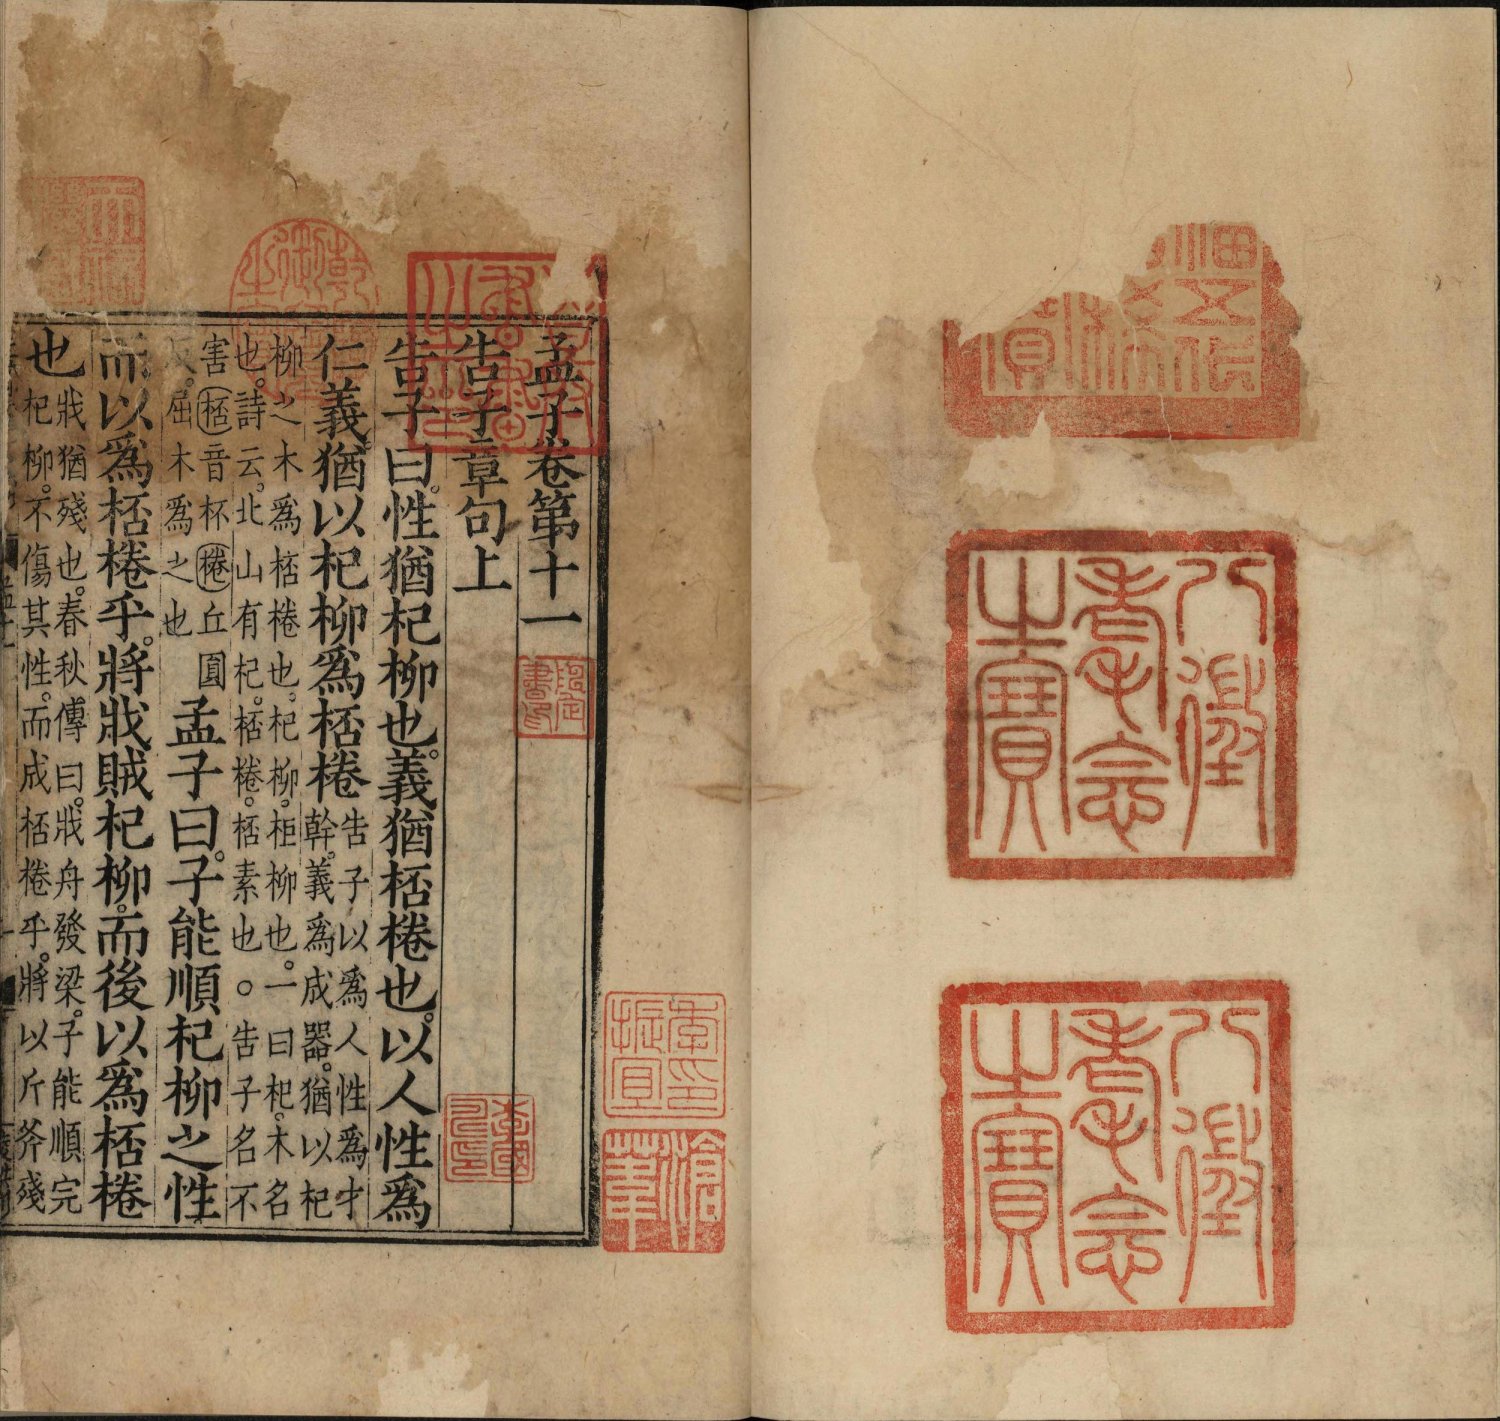 八徵耄念之寶
八徵耄念之寶
孟子卷第十一
告子章句上
告子曰。性猶杞柳也。義猶桮棬也。以人性爲
仁義猶以杞柳爲桮棬
告子以爲人性爲才
幹。義爲成器。猶以杞
柳之木爲桮棬也。杞柳。柜柳也。一曰杞。木名
也。詩云。北山有杞。桮棬。桮素也。○告子名不
害桮音杯棬丘圓
反。屈木爲之也
孟子曰。子能順杞柳之性
而以爲桮棬乎。將戕賊杞柳。而後以爲桮棬
也
戕猶殘也。春秋傳曰。戕舟發梁。子能順完
杞柳。不傷其性。而成桮棬乎。將以斤斧殘
季印振宜
滄葦